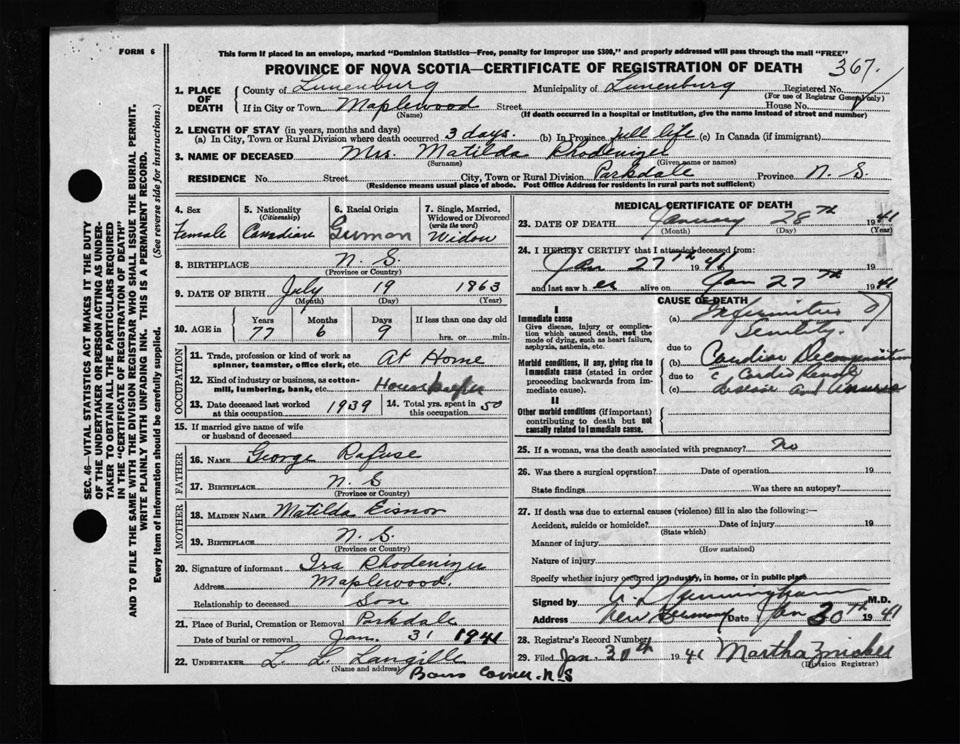 FORM 6
This form if placed in an envelope, marked "Dominion Statistics—Free, penalty for improper use $300," and properly addressed will pass through the mail "FREE"
PROVINCE OF NOVA SCOTIA—CERTIFICATE OF REGISTRATION OF DEATH 367.
SEC. 46—VITAL STATISTICS ACT MAKES IT THE DUTY
OF THE UNDERTAKER OR PERSON ACTING AS UNDER-
TAKER TO OBTAIN ALL THE PARTICULARS REQUIRED
IN THE "CERTIFICATE OF REGISTRATION OF DEATH"
AND TO FILE THE SAME WITH THE DIVISION REGISTRAR WHO SHALL ISSUE THE BURIAL PERMIT.
WRITE PLAINLY WITH UNFADING INK. THIS IS A PERMANENT RECORD.
Every item of Information should be carefully supplied. (See reverse side for instructions.)
1. PLACE OF DEATH
County of Lunenburg Municipality of Lunenburg Registered No.
(For use of Registrar General only)
If in City or Town Maplewood Street House No.
(Name) (If death occurred in a hospital or institution, give the name instead of street and number)
2. LENGTH OF STAY (in years, months and days)
(a) In City, Town or Rural Division where death occurred 3 days. (b) In Province full life (c) In Canada (if immigrant)
3. NAME OF DECEASED Mrs. Matilda Rhodenizer
(Surname) (Given name or names)
RESIDENCE No. Street City, Town or Rural Division Parkdale Province N. S.
(Residence means usual place of abode. Post Office Address for residents in rural parts not sufficient)
4. Sex
Female
5. Nationality
(Citizenship)
Canadian
6. Racial Origin
German
7. Single, Married,
Widowed or Divorced
(write the word)
Widow
8. BIRTHPLACE N. S.
(Province or Country)
9. DATE OF BIRTH July 19 1863
(Month) (Day) (Year)
10. AGE in Years Months Days If less than one day old
77 6 9 hrs. or min.
OCCUPATION
11. Trade, profession or kind of work as
spinner, teamster, office clerk, etc. At Home
12. Kind of industry or business, as cotton-
mill, lumbering, bank, etc. Housekeeper
13. Date deceased last worked
at this occupation 1939
14. Total yrs. spent in
this occupation 50
15. If married give name of wife
or husband of deceased
FATHER
16. NAME George Rafuse
17. BIRTHPLACE N. S
(Province or Country)
MOTHER
18. MAIDEN NAME Matilda Eisnor
19. BIRTHPLACE N. S.
(Province or Country)
20. Signature of informant Ira Rhodenizer
Address Maplewood.
Relationship to deceased Son
21. Place of Burial, Cremation or Removal Parkdale
Date of burial or removal Jan. 31 1941
22. UNDERTAKER L. L. Langille
(Name and address)
Corner. N. S
MEDICAL CERTIFICATE OF DEATH
23. DATE OF DEATH January 28th 1941
(Month) (Day) (Year)
24. I HEREBY CERTIFY that I attended deceased from:
Jan 27th 1941 19
and last saw her alive on Jan 27th 1941
CAUSE OF DEATH
I
Immediate cause
Give disease, injury or complica-
tion which caused death, not the
mode of dying, such as heart failure,
asphyxia, asthenia, etc.
Morbid conditions, if any, giving rise to
immediate cause (stated in order
proceeding backwards from im-
mediate cause).
II
Other morbid conditions (if important)
contributing to death but not
causally related to immediate cause.
(a) Infirmities of
Senility.
due to
(b) Cardiac Decompensation
due to Cardio Renal
(c) disease and
25. If a woman, was the death associated with pregnancy? No
26. Was there a surgical operation? Date of operation 19
State findings Was there an autopsy?
27. If death was due to external causes (violence) fill in also the following:—
Accident, suicide or homicide? Date of injury 19
(State which)
Manner of injury
(How sustained)
Nature of injury
Specify whether injury occurred in industry, in home, or in public place
Signed by Cunningham M.D.
Address New Germany Date Jan 30th 1941
28. Registrar's Record Number
29. Filed Jan. 30th 1941 Martha
(Division Registrar)